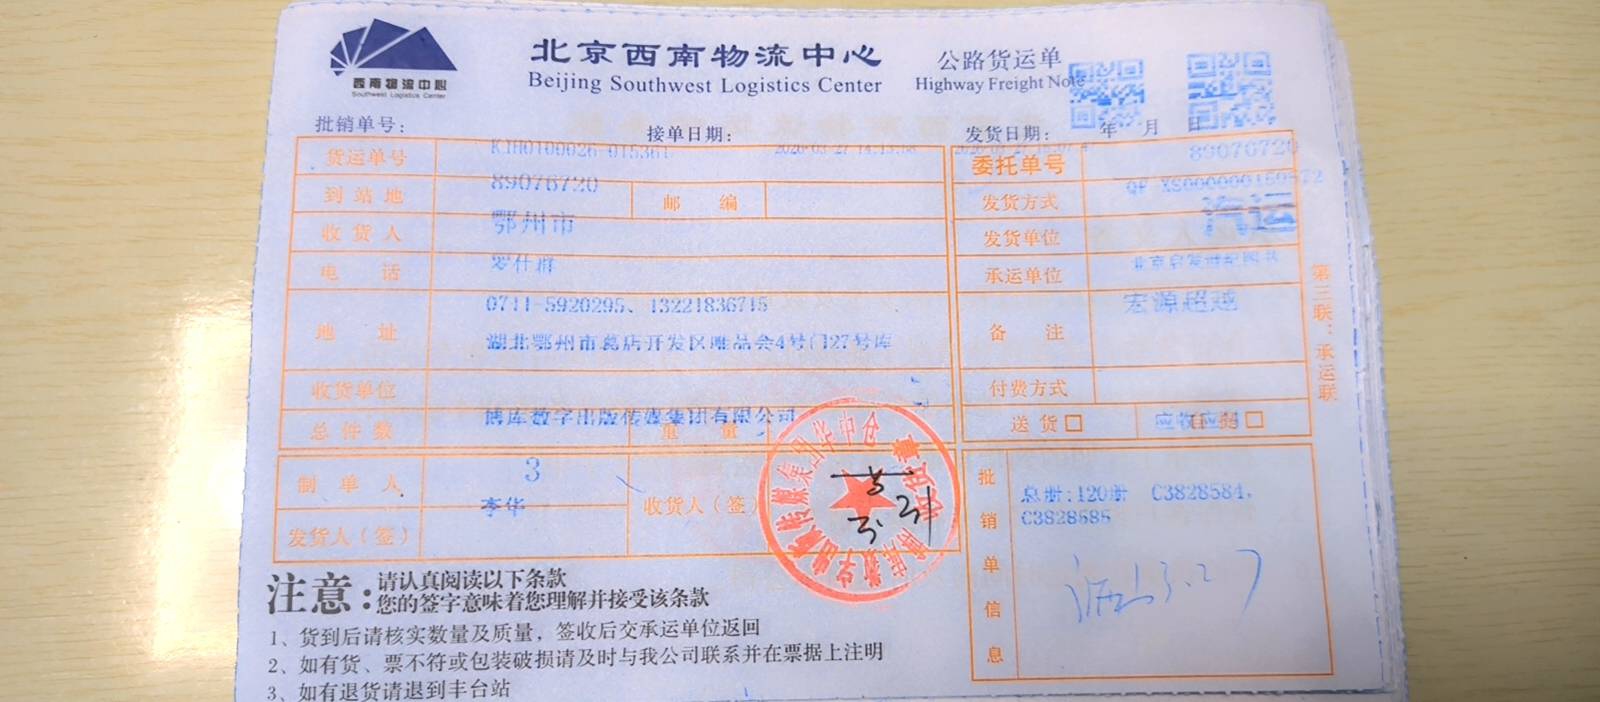 西南物流中心
Southwest Logistics Center
北京西南物流中心
Beijing Southwest Logistics Center
公路货运单
Highway Freight Note
批销单号：
接单日期：
发货日期： 年 月 日
货运单号
委托单号 89076720
到站地 89076720 邮编
发货方式 汽运
收货人 鄂州市
发货单位
电话
承运单位 北京启发世纪图书
地址 0711-5920295、13221836715
湖北鄂州市葛店开发区唯品会4号门27号库
备注 宏源超越
收货单位
付费方式
总件数 博库数字出版传媒集团有限公司 重量
送货 自提
制单人 3
李华
收货人（签）
发货人（签）
批销单信息
总册:120册 C3828584,
C3828585
第三联：承运联
注意：请认真阅读以下条款
您的签字意味着您理解并接受该条款
1、货到后请核实数量及质量，签收后交承运单位返回
2、如有货、票不符或包装破损请及时与我公司联系并在票据上注明
3、如有退货请退到丰台站